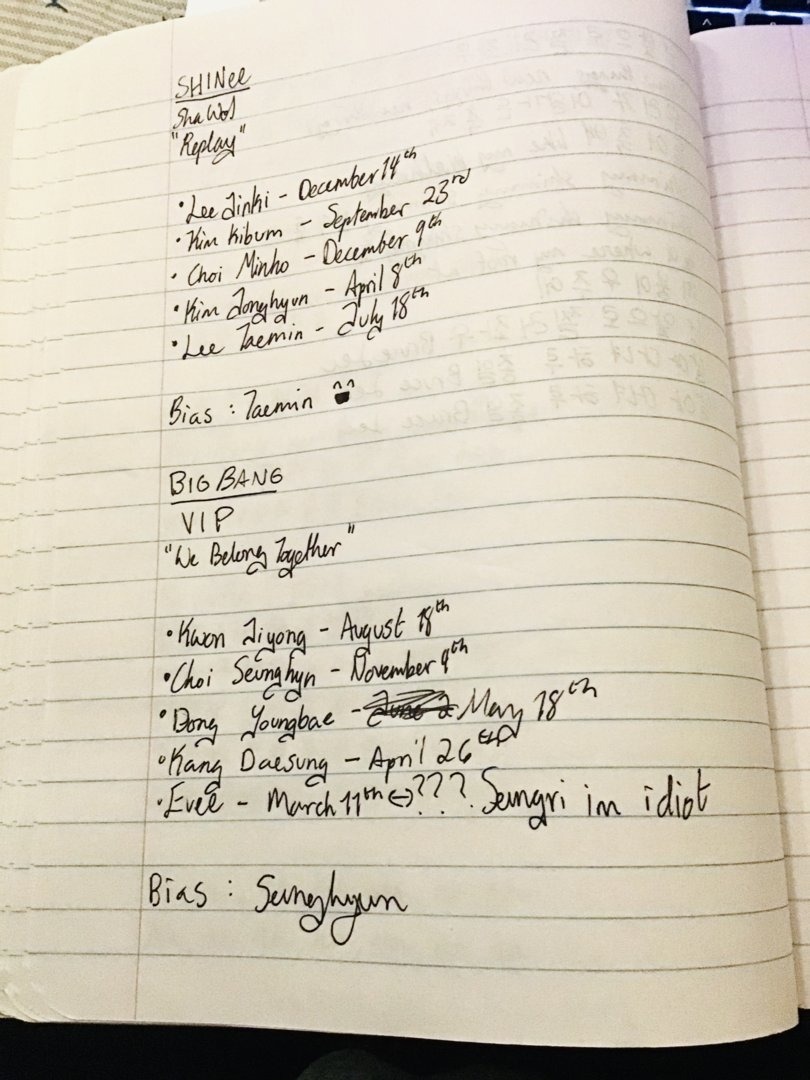 SHINee
ShaWol
"Replay"
• Lee Jinki - December 14th
• Kim Kibum - September 23rd
• Choi Minho - December 9th
• Kim Jonghyun - April 8th
• Lee Taemin - July 18th
Bias : Taemin
BIG BANG
VIP
"We Belong Together"
• Kwon Jiyong - August 18th
• Choi Seunghyn - November 4th
• Dong Youngbae - May 18th
• Kang Daesung - April 26th
• - March 11th ↔ ??? Seungri im idiot
Bias : Seunghyun